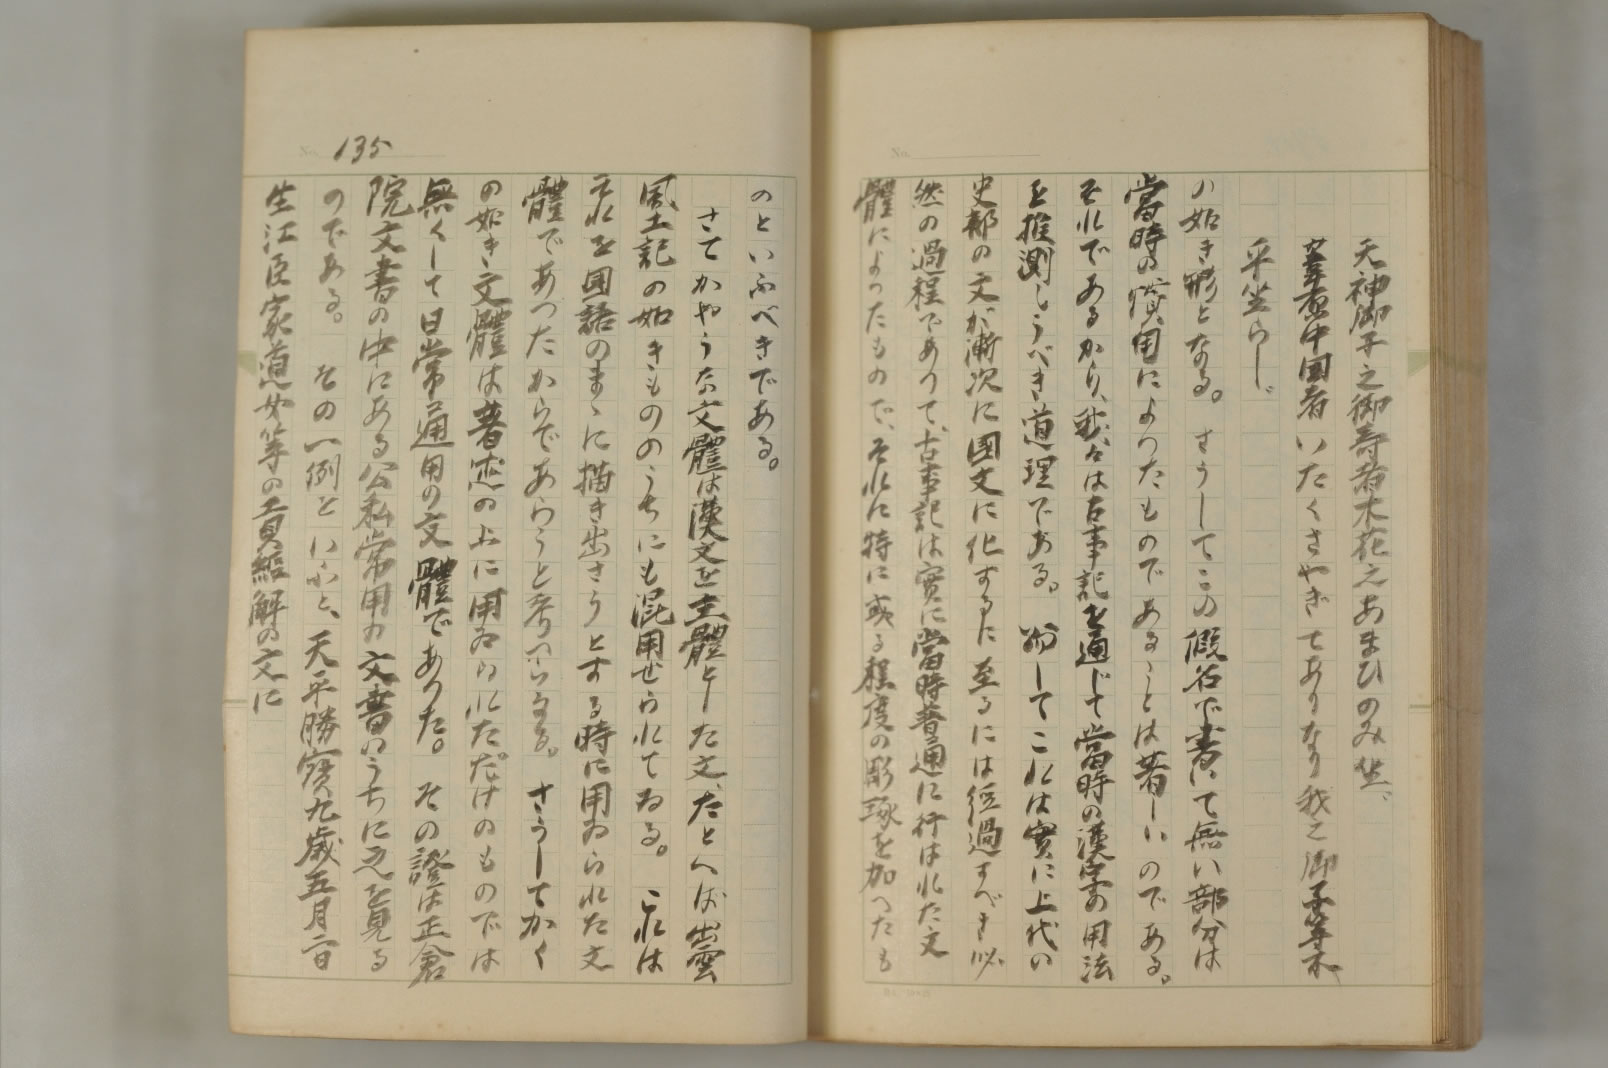 天神御子之御寿者木花之あまひのみ坐、
葦原中国者いたくさやぎてありなり我之御子等不
平坐らし、
の如き形となる。さうしてこの假名で書いて無い部分は
當時の慣用によつたものであることは著しいのである。
それであるから、我々は古事記を通じて當時の漢字の用法
を推測しうべき道理である。而してこれは實に上代の
史部の文が漸次に國文に化するに至るには經過すべき必
然の過程であつて、古事記は實に當時普通に行はれた文
體によつたもので、それに特に或る程度の彫琢を加へたも
135
のといふべきである。
さてかやうな文體は漢文を主體とした文、たとへば出雲
風土記の如きもののうちにも混用せられてゐる。これは
それを國語のまゝに描き出さうとする時に用ゐられた文
體であつたからであらうと考へらるる。さうしてかく
の如き文體は著述の上に用ゐられただけのものでは
無くして日常通用の文體であつた。その證は正倉
院文書の中にある公私常用の文書のうちに之を見る
のである。その一例をいふと、天平勝寶九歳五月二日
生江臣家道女等の貢經解の文に